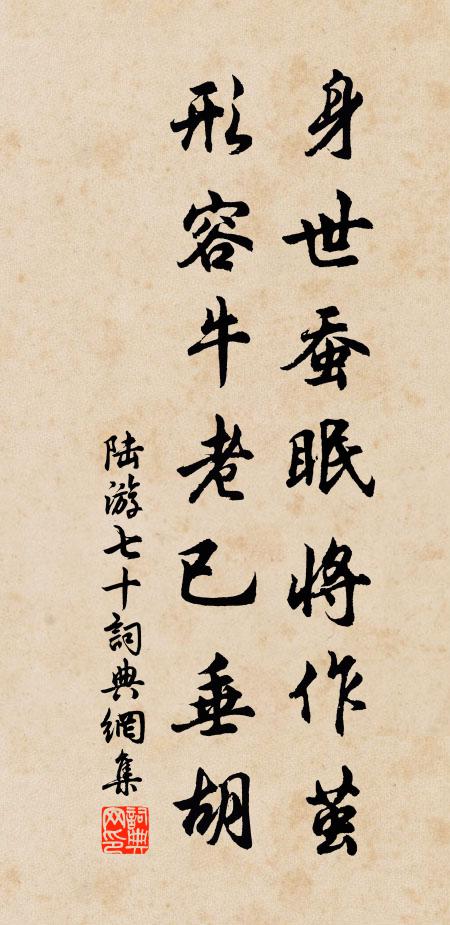 身世蚕眠将作茧
形容牛老已垂胡
陆游七十詞典網集
詞典网印